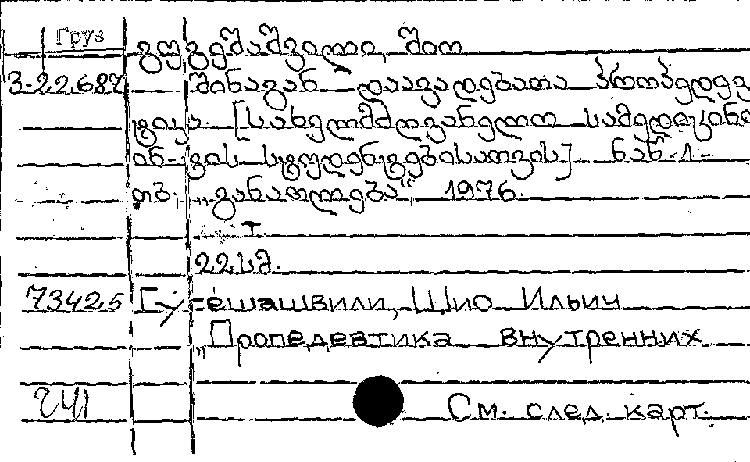 Груз გუგეშაშვილი, შიო
3-22687 შინაგან დაავადებათა პროპედევ
ტიკა [სახელმძღვანელო სამედიცინო
ინ-ტის სტუდენტებისათვის] ნაწ-1-
თბ., „განათლება", 1976.
т.
22სმ.
73425 Гугешашвили, Шио Ильич
„Пропедевтика внутренних
241 См. след. карт.